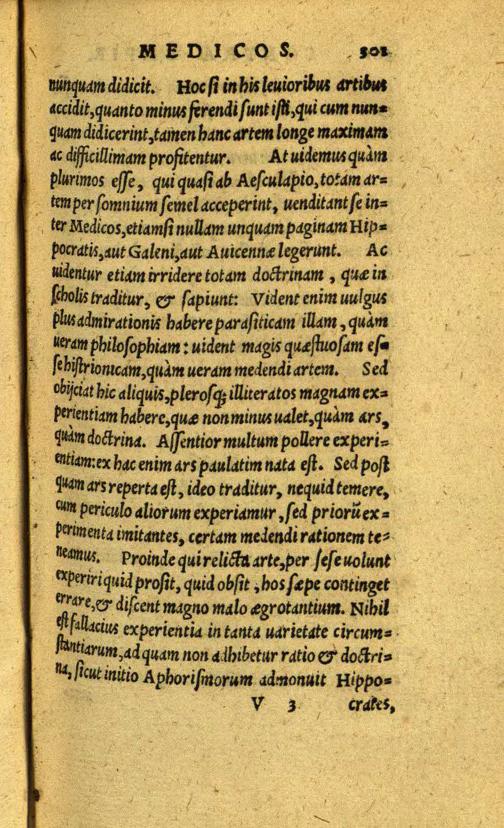 MEDICOS. 301
nunquam didicit. Hoc si in his leuioribus artibus
accidit, quanto minus ferendi sunt isti, qui cum nun=
quam didicerint, tamen hanc artem longe maximam
ac difficillimam profitentur. At uidemus quàm
plurimos esse, qui quasi ab Aesculapio, totam ar=
tem per somnium semel acceperint, uenditant se in=
ter Medicos, etiamsi nullam unquam paginam Hip=
pocratis, aut Galeni, aut Auicennæ legerunt. Ac
uidentur etiam irridere totam doctrinam, quæ in
scholis traditur, & sapiunt: Vident enim uulgus
plus admirationis habere parasiticam illam, quàm
ueram philosophiam: uident magis quæstuosam es=
se histrionicam, quàm ueram medendi artem. Sed
obijciat hic aliquis, plerosq; illiteratos magnam ex=
perientiam habere, quæ non minus ualet, quàm ars,
quàm doctrina. Assentior multum pollere experi=
entiam: ex hac enim ars paulatim nata est. Sed post
quam ars reperta est, ideo traditur, ne quid temere,
cum periculo aliorum experiamur, sed priorũ ex=
perimenta imitantes, certam medendi rationem te=
neamus. Proinde qui relicta arte, per sese uolunt
experiri quid prosit, quid obsit, hos sæpe continget
errare, & discent magno malo ægrotantium. Nihil
est fallacius experientia in tanta uarietate circum=
stantiarum, ad quam non adhibetur ratio & doctri=
na, sicut initio Aphorismorum admonuit Hippo=
V 3 crates,